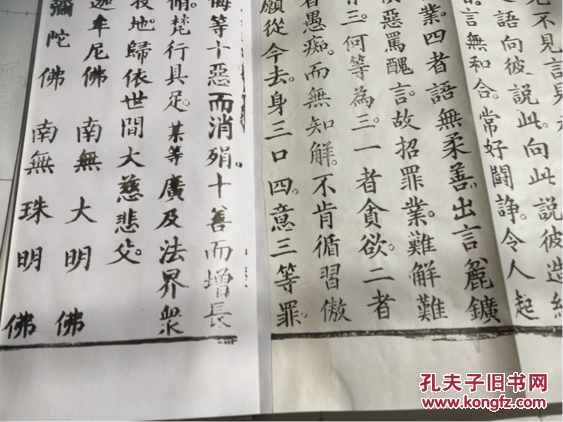 不見言見
語向彼說此。向此說彼造
言無和合。常好鬪諍。令人起
業。四者語無柔善。出言麤鑛
惡罵醜言。故招罪業。難解難
三。何等為三。一者貪欲。二者
者愚痴。而無知解。不肯循習。傲
願從今去。身三口四。意三等罪。
悔等十惡而消殞。十善而增長
梵行具足。某等廣及法界眾
投地歸依世間大慈悲父。
迦牟尼佛 南無大明佛
彌陀佛 南無珠明佛
孔夫子旧书网
www.kongfz.com